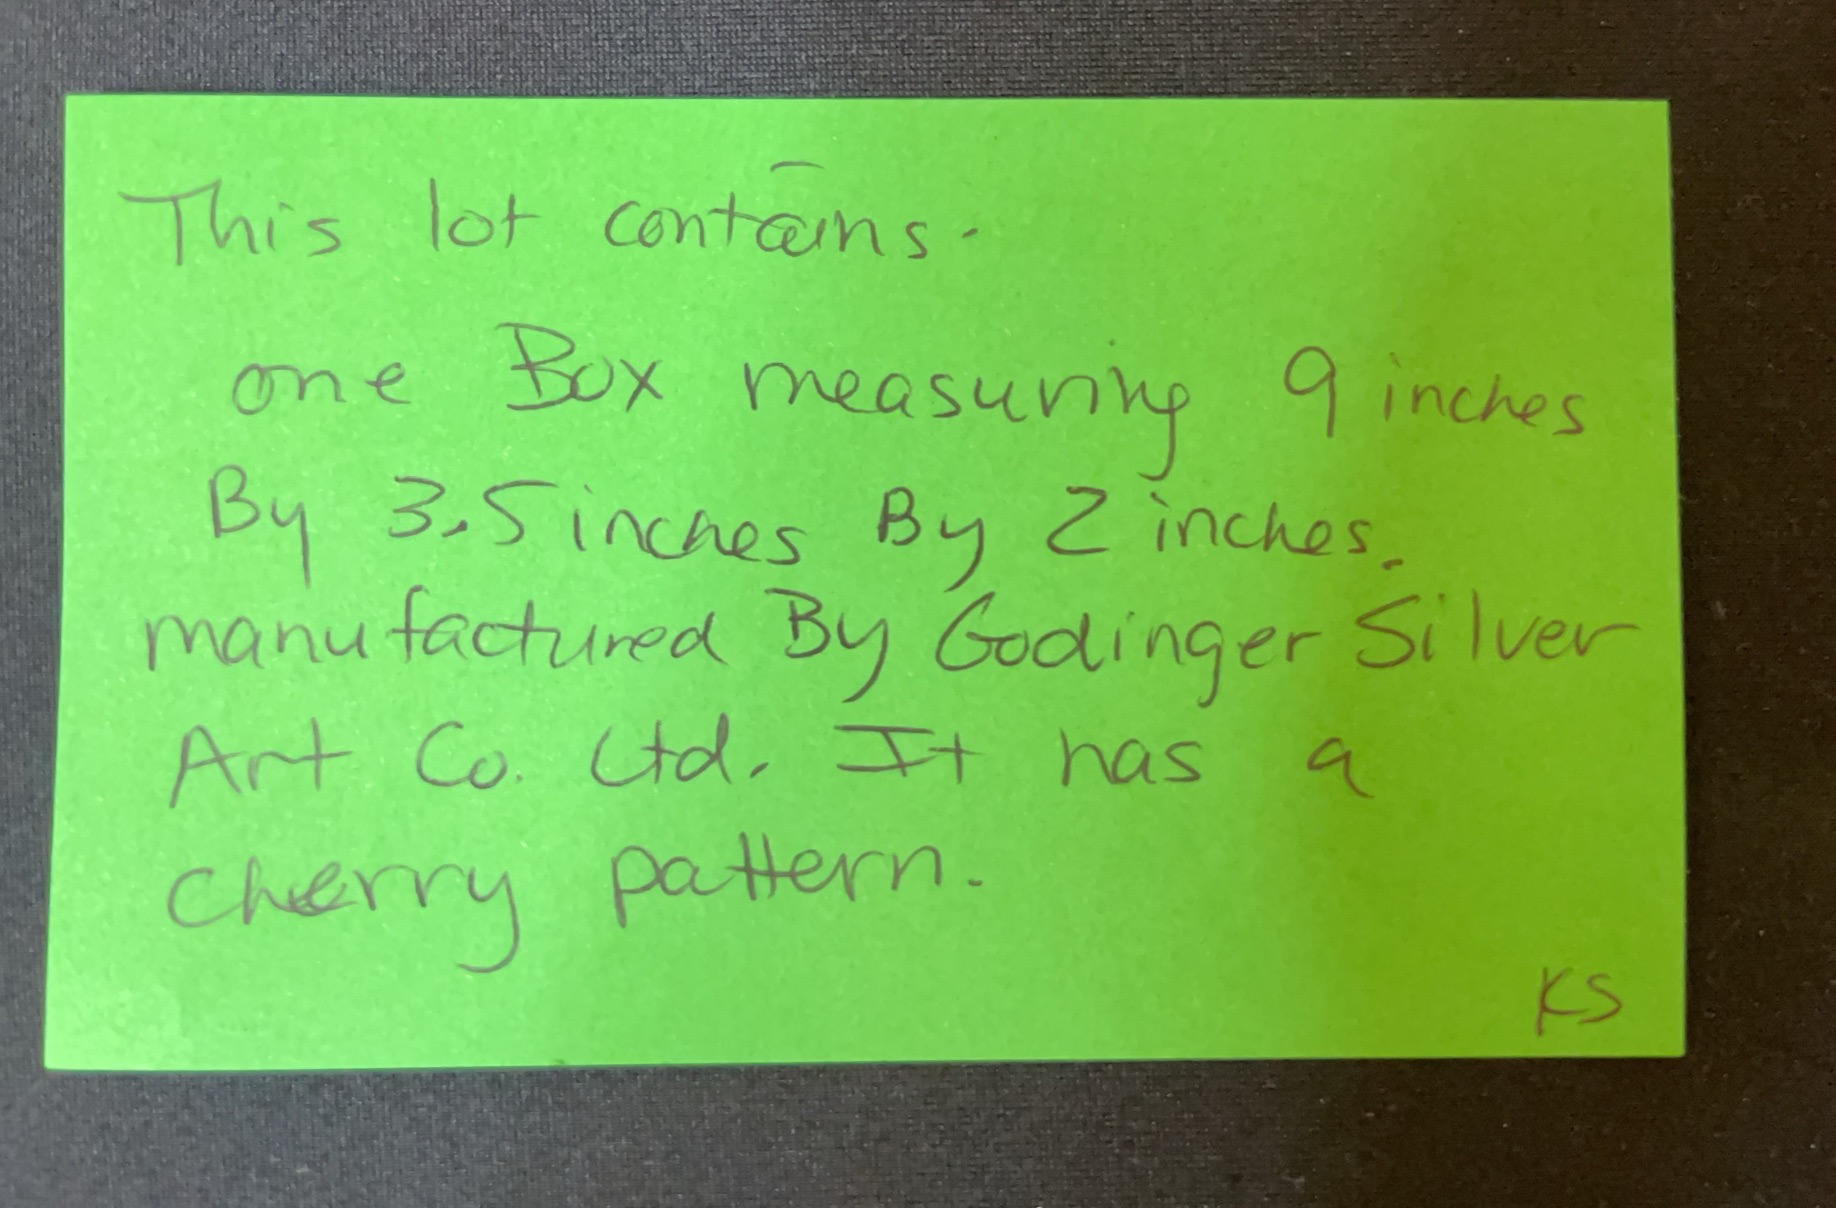 This lot contains.
one Box measuring 9 inches
By 3.5 inches By 2 inches.
manufactured By Godinger Silver
Art Co. Ltd. It has a
cherry pattern.
KS